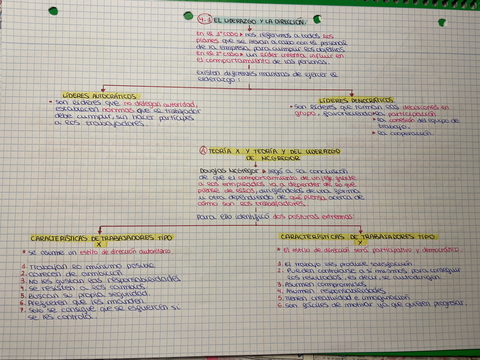 4.1 EL LIDERAZGO Y LA DIRECCIÓN:
En el 1º caso → nos referimos a todos los
planes que se llevan a cabo con el personal
de la empresa, para cumplir los objetivos
En el 2º caso → un líder intenta influir en
el comportamiento de las personas.
Existen diferentes maneras de ejercer el
liderazgo:
LÍDERES AUTOCRÁTICOS:
• Son líderes que no delegan autoridad,
establecen normas que el trabajador
debe cumplir, sin hacer partícipes
a los trabajadores.
LÍDERES DEMOCRÁTICOS
• Son líderes que toman las decisiones en
grupo, favoreciendo la participación
la cohesión del equipo de
trabajo.
la cooperación
TEORÍA X Y TEORÍA Y DEL LIDERAZGO
DE MCGREGOR
Douglas McGregor → llegó a la conclusión
de que el comportamiento de un jefe frente
a los empleados va a depender de lo que
piense de ellos, dirigiéndolos de una forma
u otra dependiendo de qué piense acerca de
cómo son los trabajadores.
Para ello identificó dos posturas extremas
CARACTERÍSTICAS DE TRABAJADORES TIPO
X
• Se asume un estilo de dirección autoritario
1. Trabajan lo mínimo posible
2. Carecen de ambición
3. No les gustan las responsabilidades
4. Se resisten a los cambios
5. Buscan su propia seguridad
6. Prefieren que les manden
7. Solo se consigue que se esfuercen si
se les controla.
CARACTERÍSTICAS DE TRABAJADORES TIPO
Y
• El estilo de dirección será participativo y democrático.
1. El trabajo les produce satisfacción
2. Pueden controlarse a sí mismos para conseguir
los resultados, es decir, se autodirigen
3. Asumen compromisos
4. Asumen responsabilidades
5. Tienen creatividad e imaginación
6. Son fáciles de motivar ya que quieren progresar.